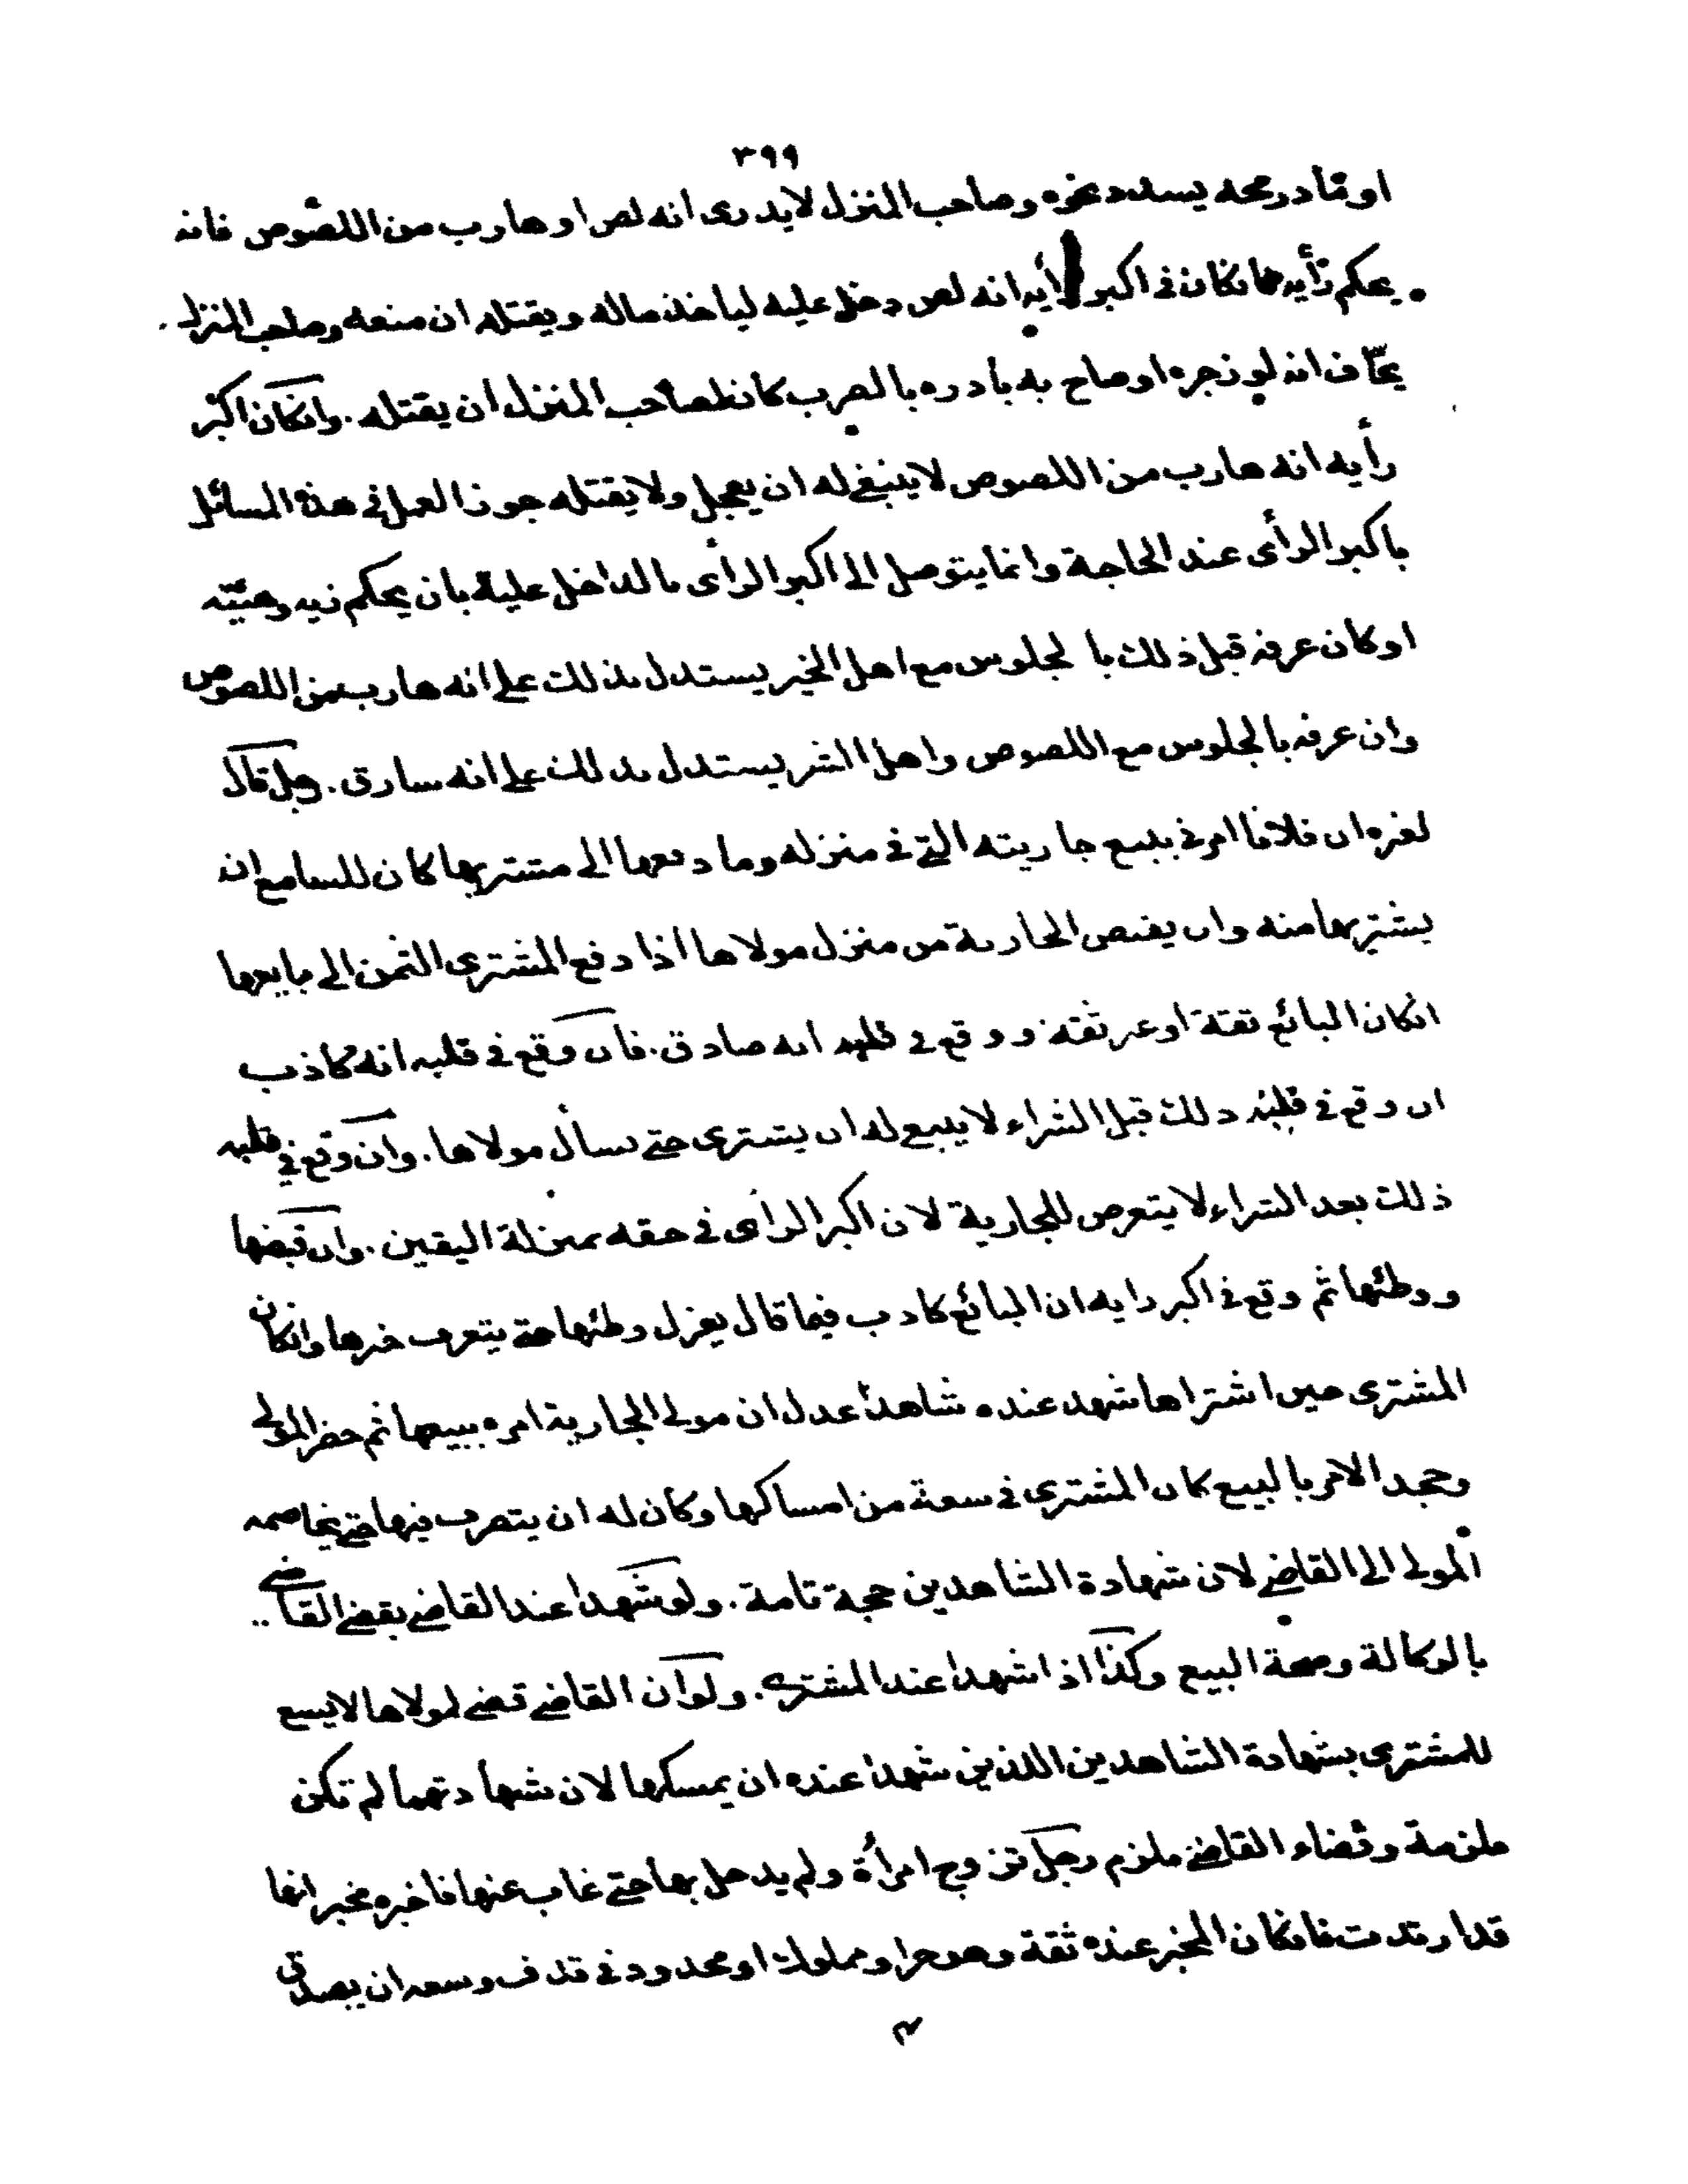 ٣٩٩
او مادا رمحه يسدد نحوه وصاحب المنزل لا يدرى انه لص او هارب من اللصوص فانه
يحكم رأيه فانكان فى اكبر رأيه انه لص دخل عليه لياخذ ماله ويقتله ان منعه وصاحب المنزل
يخاف انه لو زجره او صاح به بادره بالضرب كان لصاحب المنزل ان يقتله . وانكان اكبر
رأيه انه هارب من اللصوص لا ينبغى له ان يعجل ولا يقتله جوز العمل فى هذه المسائل
باكبر الرأى عند الحاجة وانما يتوصل الى اكبر الراى بالداخل عليه بان يحكم زيه وهيئته
او كان عرفه قبل ذلك بالجلوس مع اهل الخير يستدل بذلك على انه هارب من اللصوص
وان عرفه بالجلوس مع اللصوص واهل الشر يستدل بذلك على انه سارق . رجل قال
لغيره ان فلانا امرنى ببيع جاريته التى فى منزله وما دفعها الى مشتريها كان للسامع ان
يشتريها منه وان يقبض الجارية من منزل مولاها اذا دفع المشترى الثمن الى بايعها
انكان البائع ثقة او غير ثقة ووقع فى قلبه انه صادق . فان وقع فى قلبه انه كاذب
ان وقع فى قلبه ذلك قبل الشراء لا ينبغى له ان يشترى حتى يسأل مولاها . وان وقع فى قلبه
ذلك بعد الشراء لا يتعرض للجارية لان اكبر الراى فى حقه بمنزلة اليقين . وان قبضها
ووطئها ثم وقع فى اكبر رايه ان البائع كاذب فيما قال يعزل وطئها حتى يتعرف خبرها وانكان
المشترى حين اشتراها شهد عنده شاهدا عدل ان مولى الجارية امره ببيعها ثم حضر المولى
وجحد الامر بالبيع كان المشترى فى سعة من امساكها وكان له ان يتصرف فيها حتى يخاصمه
المولى الى القاضى لان شهادة الشاهدين حجة تامة . ولو شهدا عند القاضى يقضى القاضى
بالوكالة وصحة البيع وكذا اذا شهدا عند المشترى . ولو ان القاضى قضى لمولاها لا يسع
للمشترى بشهادة الشاهدين اللذين شهدا عنده ان يمسكها لان شهادتهما لم تكن
ملزمة وقضاء القاضى ملزم رجل تزوج امرأة ولم يدخل بها حتى غاب عنها فاخبره مخبر انها
قد ارتدت فانكان المخبر عنده ثقة وهو حر او مملوك او محدود فى قذف وسعه ان يصدق